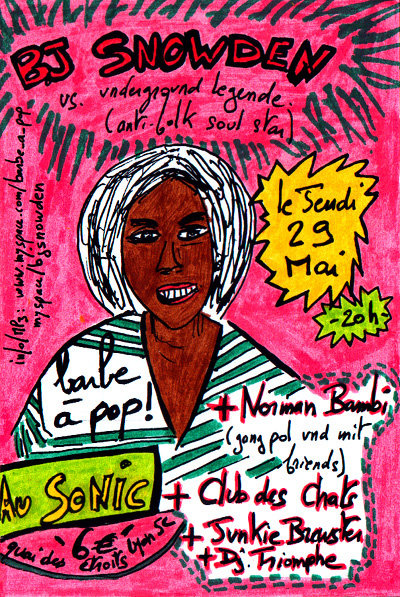 BJ SNOWDEN
us. underground legende.
(anti-folk soul star)
info/MP3: www.myspace.com/barbe_a_pop
myspace/bjsnowden
le Jeudi
29
Mai
-20h-
barbe
à pop!
+ Norman Bambi
(gong pol und mit
friends)
+ Club des Chats
+ Junkie Brewster
+ Dj. Triomphe
Au SONIC
6€
quai des étroits Lyon 5e